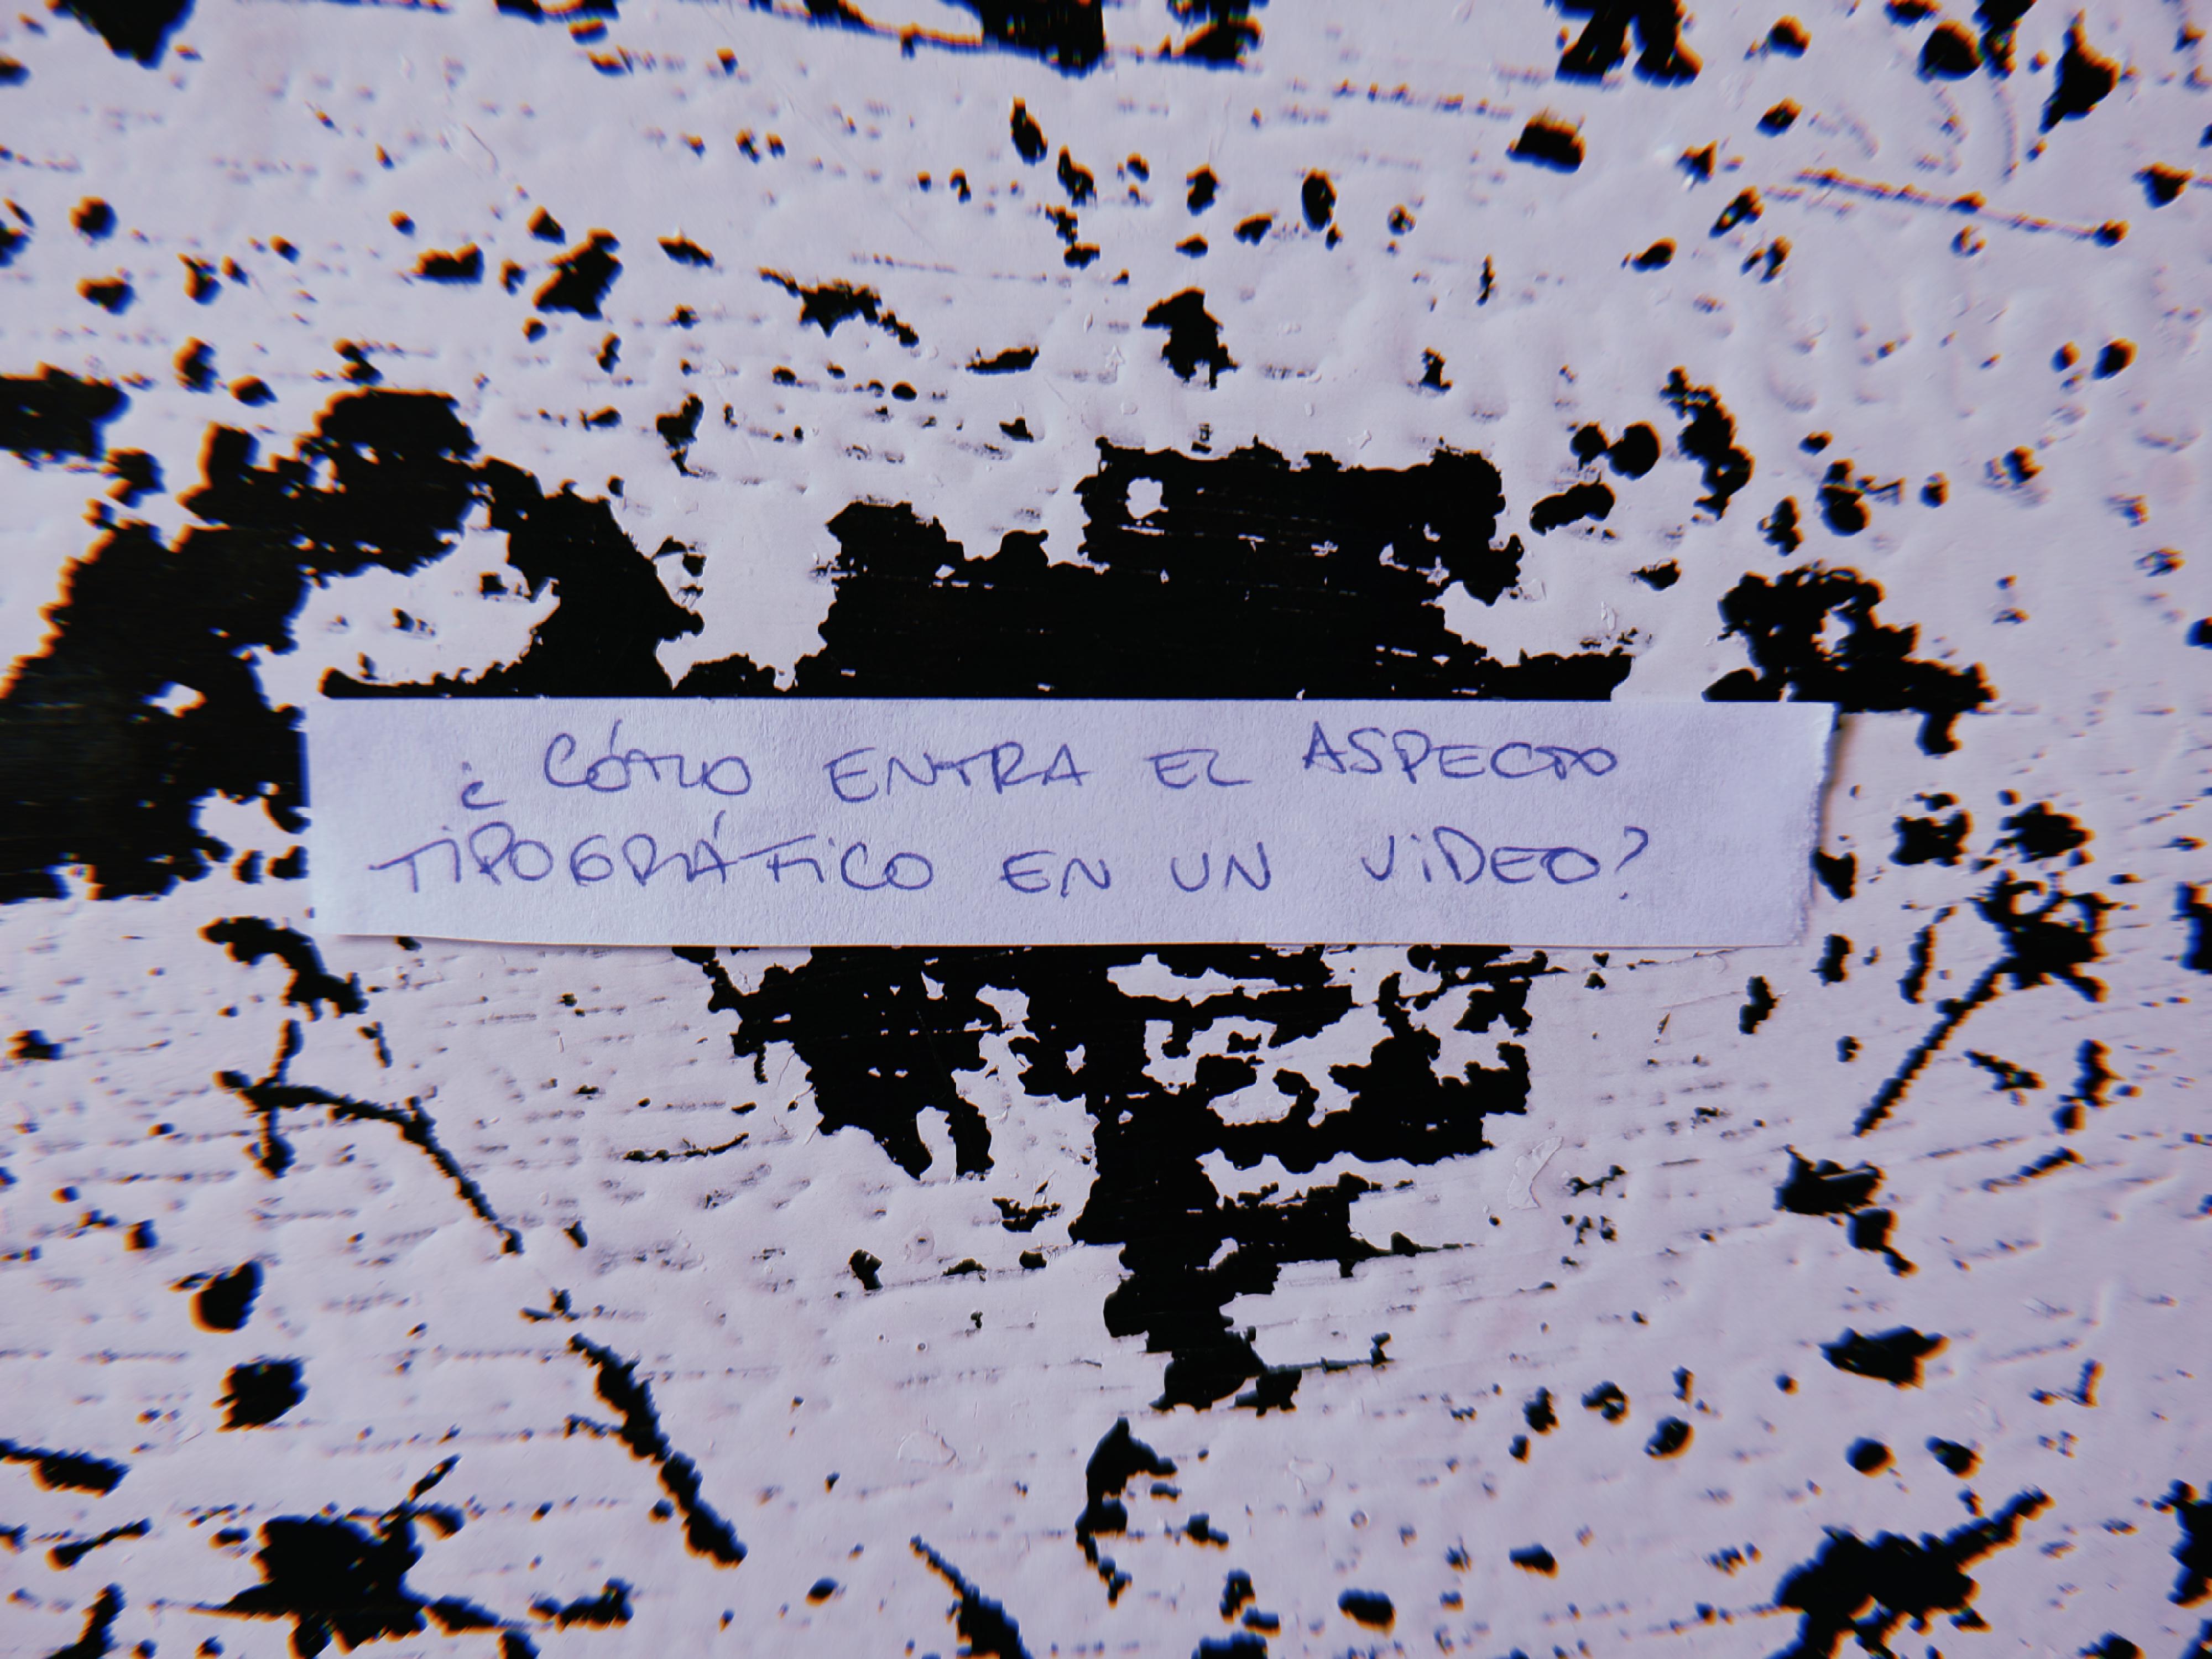 ¿CÓMO ENTRA EL ASPECTO
TIPOGRÁFICO EN UN VIDEO?